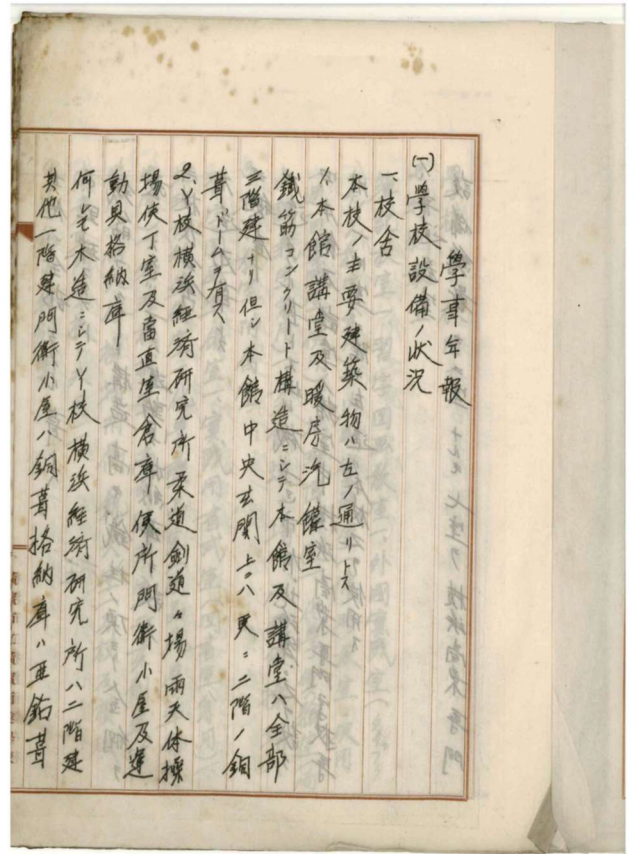 學事年報
(一)學校設備ノ狀況
一、校舎
本校ノ主要建築物ハ左ノ通リトス
1、本館講堂及暖房汽罐室
鐵筋コンクリート構造ニシテ本館及講堂ハ全部
三階建ナリ但シ本館中央玄関上ハ更ニ二階ノ銅
葺ドームヲ有ス
2、Y校横浜経済研究所柔道剣道々場雨天体操
場使丁室及當直室倉庫便所門衛小屋及運
動具格納庫
何レモ木造ニシテY校横浜経済研究所ハ二階建
其他一階建門衛小屋ハ銅葺格納庫ハ亜鉛葺